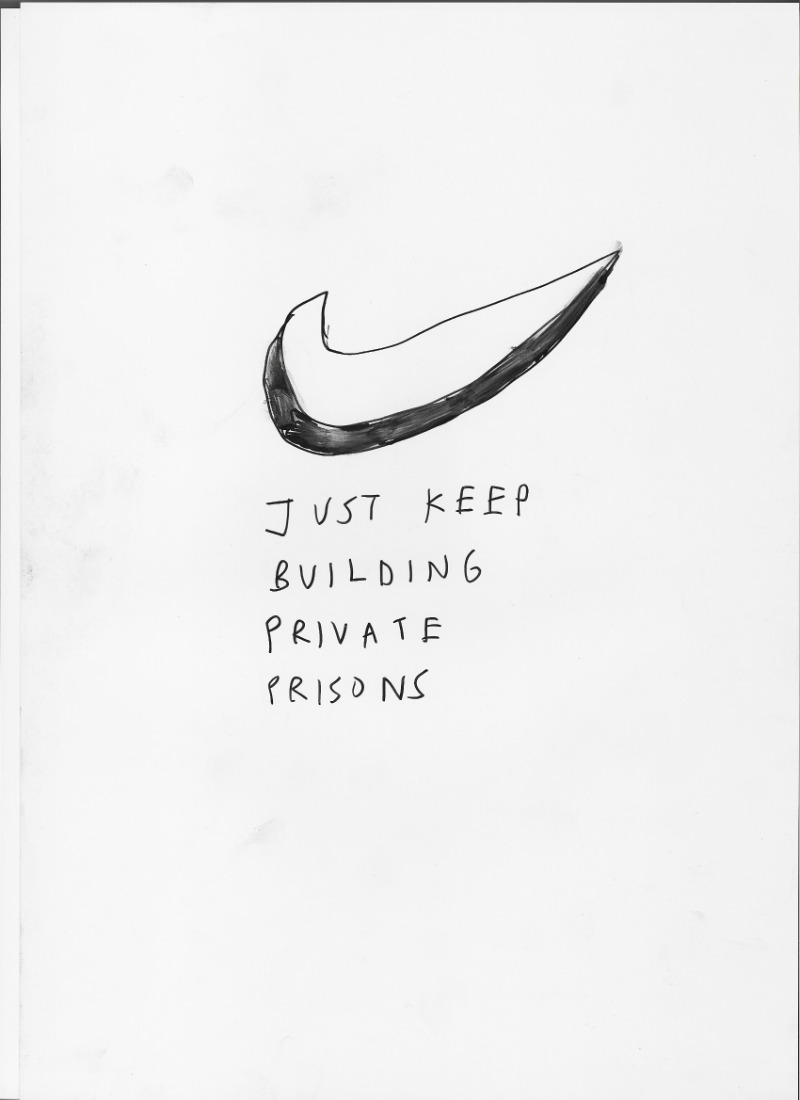 JUST KEEP
BUILDING
PRIVATE
PRISONS